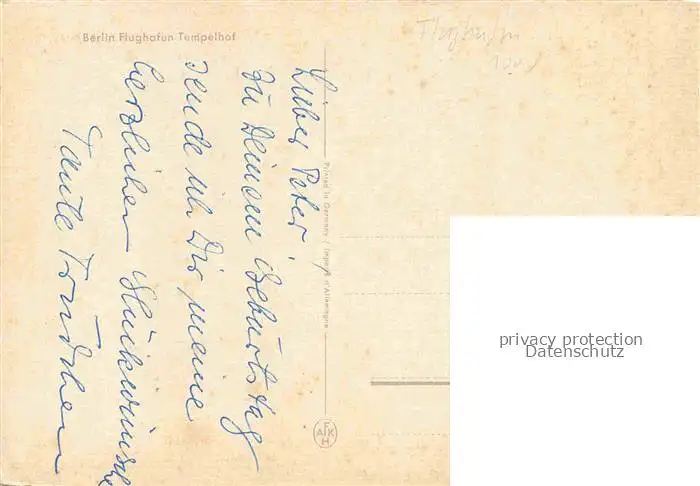 Berlin Flughafun Tempelhof
Lieber Peter!
Zu Deinem Geburtstag
sende ich Dir meine
herzlichen Glückwünsche
Tante Trudchen
Printed in Germany / Importé d'Allemagne
AFKH
Flughafen
privacy protection
Datenschutz